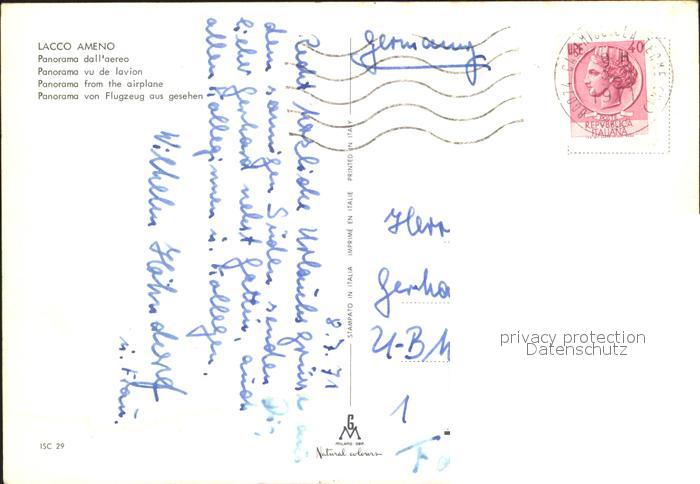 LACCO AMENO
Panorama dall'aereo
Panorama vu de lavion
Panorama from the airplane
Panorama von Flugzeug aus gesehen
8.7.71
Recht herzliche Urlaubsgrüsse aus
dem sonnigen Süden senden Dir,
lieber Gerhard nebst Gattin, auch
allen Kolleginnen u. Kollegen.
Wilhelm
u. Frau.
ISC 29
STAMPATO IN ITALIA IMPRIMÉ EN ITALIE PRINTED IN ITALY
GM
MILANO DEP.
Natural colours
Germany
LIRE 40
REPVBBLICA
ITALIANA
Herr
Gerha
U-BH
1
privacy protection
Datenschutz